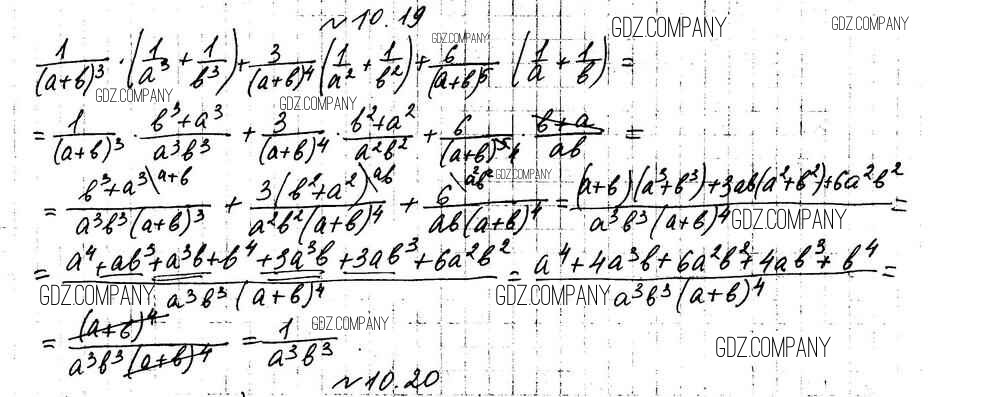 ~10.19
GDZ.COMPANY GDZ.COMPANY GDZ.COMPANY
1/(a+b)³ · (1/a³ + 1/b³) + 3/(a+b)⁴ (1/a² + 1/b²) + 6/(a+b)⁵ (1/a + 1/b) =
GDZ.COMPANY GDZ.COMPANY
= 1/(a+b)³ · (b³+a³)/(a³b³) + 3/(a+b)⁴ · (b²+a²)/(a²b²) + 6/(a+b)⁵ ⁴ · (b+a)/(ab) =
GDZ.COMPANY
= (b³+a³ \a+b)/(a³b³(a+b)³) + (3(b²+a²) \ab)/(a²b²(a+b)⁴) + (6 \a²b²)/(ab(a+b)⁴) = ((a+b)(a³+b³)+3ab(a²+b²)+6a²b²)/(a³b³(a+b)⁴) =
GDZ.COMPANY
= (a⁴+ab³+a³b+b⁴+3a³b+3ab³+6a²b²)/(a³b³(a+b)⁴) = (a⁴+4a³b+6a²b²+4ab³+b⁴)/(a³b³(a+b)⁴) =
GDZ.COMPANY GDZ.COMPANY
= (a+b)⁴/(a³b³(a+b)⁴) = 1/(a³b³)
GDZ.COMPANY GDZ.COMPANY
~10.20